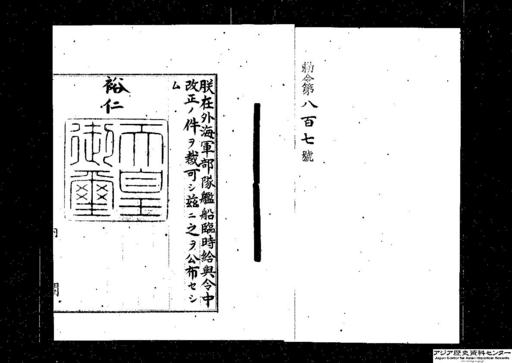 勅令第八百七號
朕在外海軍部隊艦船臨時給與令中
改正ノ件ヲ裁可シ茲ニ之ヲ公布セシ
ム
裕仁
天皇
御璽
アジア歴史資料センター
Japan Center for Asian Historical Records